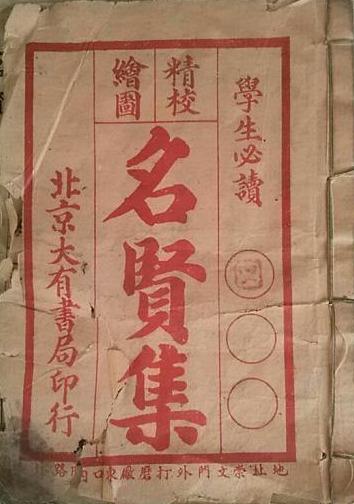 學生必讀
精校
繪圖
名賢集
北京大有書局印行
地址崇文門外打磨廠東口內路